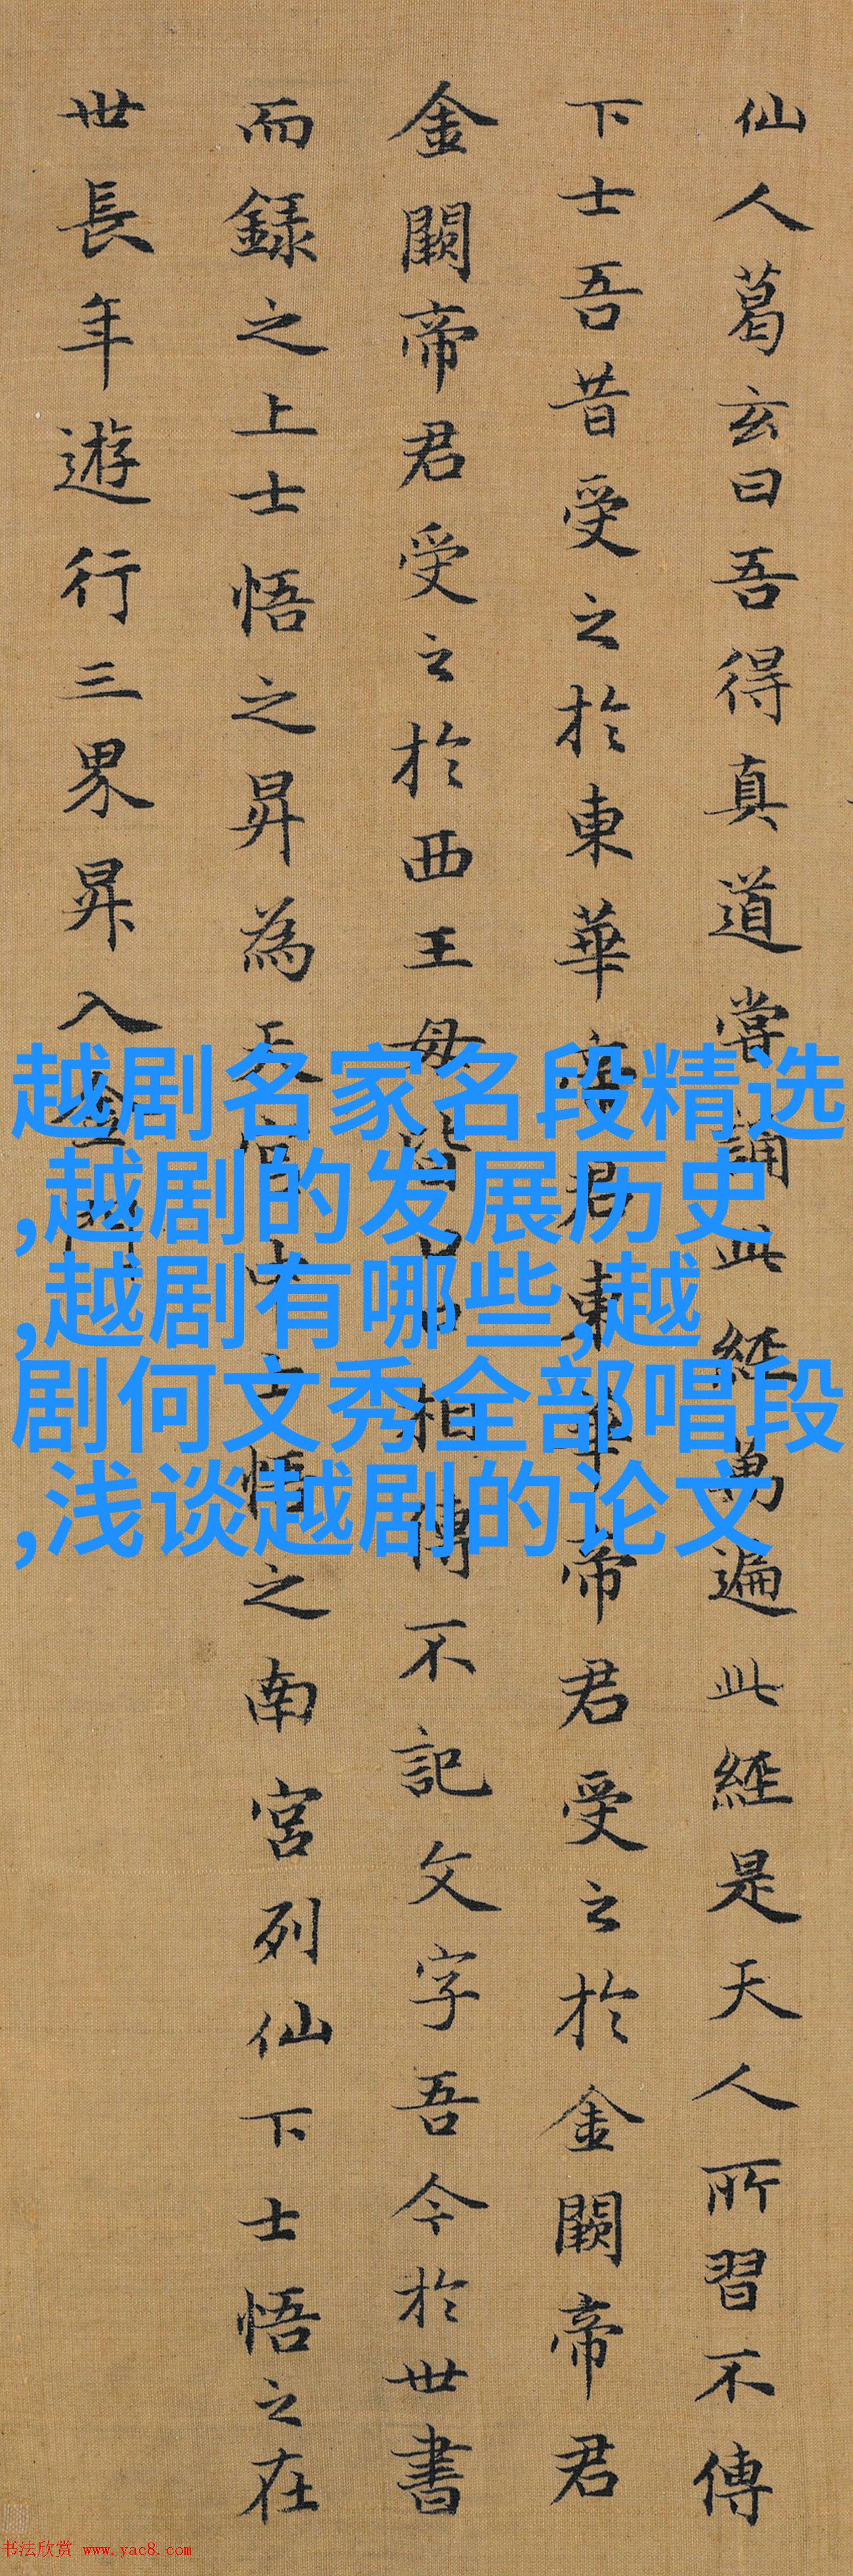 仙人葛玄曰吾得真道嘗誦此經萬遍此經是天人所習不傳
下士吾昔受之於東華帝君東華帝君受之於金闕帝君
金闕帝君受之於西王母皆口口相傳不記文字吾今於世書
而録之上士悟之昇為天官中士悟之南宮列仙下士悟之在
世長年遊行三界昇入金門
越剧名家名段精选
,越剧的发展历史
,越剧有哪些,越
剧何文秀全部唱段
,浅谈越剧的论文
书法欣赏 www.yac8.com